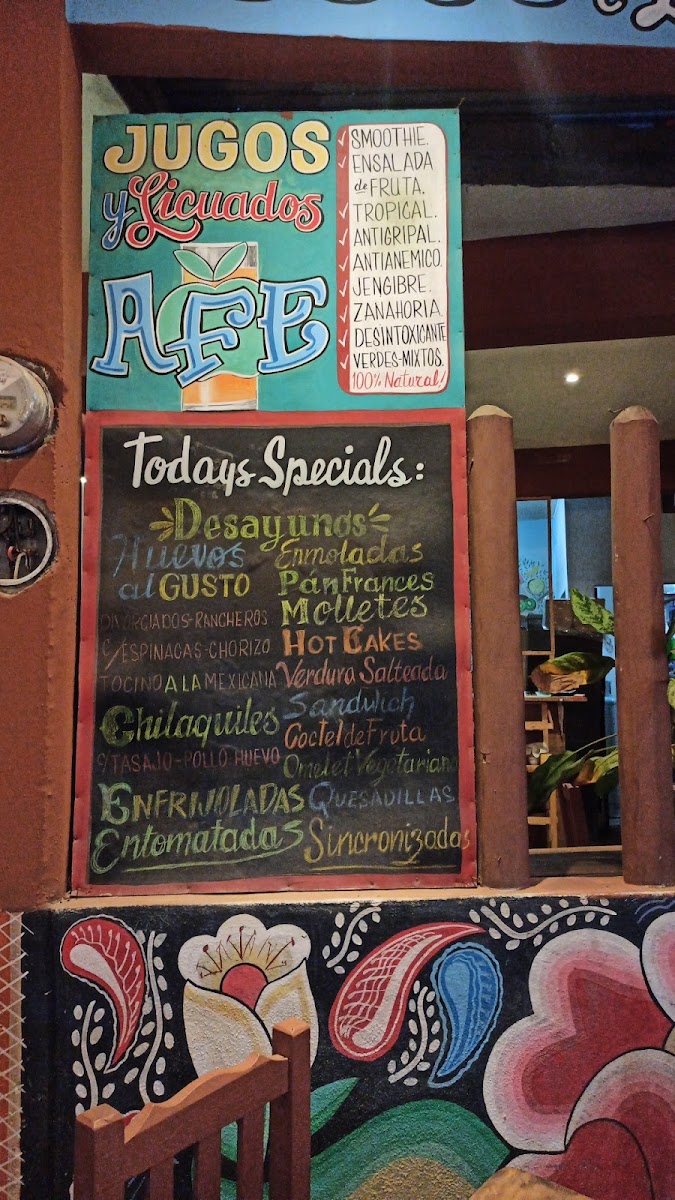 JUGOS
y Licuados
AFE
SMOOTHIE.
ENSALADA
de FRUTA.
TROPICAL.
ANTIGRIPAL.
ANTIANEMICO.
JENGIBRE.
ZANAHORIA.
DESINTOXICANTE
VERDES-MIXTOS.
100% Natural!
Todays Specials:
Desayunos
Huevos
al GUSTO
DIVORCIADOS-RANCHEROS
C/ESPINACAS-CHORIZO
TOCINO A LA MEXICANA
Chilaquiles
C/TASAJO-POLLO HUEVO
ENFRIJOLADAS
Entomatadas
Enmoladas
Pán Frances
Molletes
HOT CAKES
Verdura Salteada
Sandwich
Coctel de Fruta
Omelet Vegotariano
QUESADILLAS
Sincronizadas